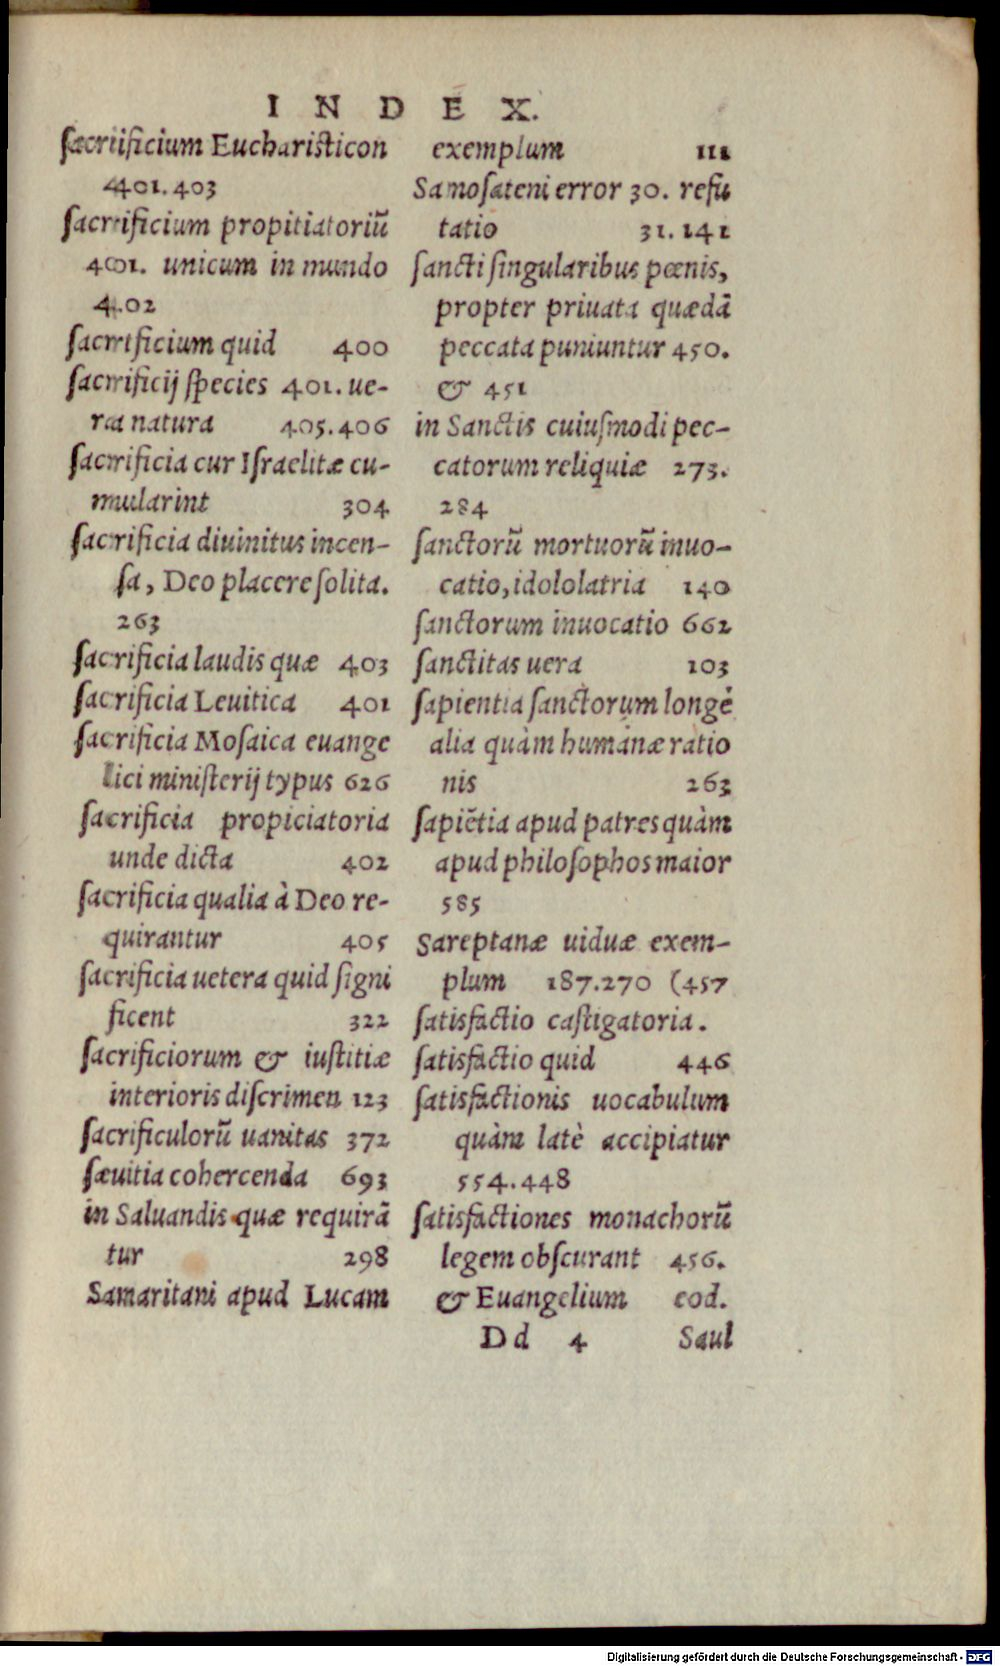 INDEX.
ſacrificium Euchariſticon
401. 403
ſacrificium propitiatoriũ
401. unicum in mundo
402
ſacrificium quid 400
ſacrificij ſpecies 401. ue-
ra natura 405. 406
ſacrificia cur Iſraelitæ cu-
mularint 304
ſacrificia diuinitus incen-
ſa, Deo placere ſolita.
263
ſacrificia laudis quæ 403
ſacrificia Leuitica 401
ſacrificia Moſaica euange
lici miniſterij typus 626
ſacrificia propiciatoria
unde dicta 402
ſacrificia qualia à Deo re-
quirantur 405
ſacrificia uetera quid ſigni
ficent 322
ſacrificiorum & iuſtitiæ
interioris diſcrimen 123
ſacrificulorũ uanitas 372
ſæuitia cohercenda 693
in Saluandis quæ requirã
tur 298
Samaritani apud Lucam
exemplum 111
Samoſateni error 30. refu
tatio 31. 141
ſancti ſingularibus pœnis,
propter priuata quædã
peccata puniuntur 450.
& 451
in Sanctis cuiuſmodi pec-
catorum reliquiæ 273.
284
ſanctorũ mortuorũ inuo-
catio, idololatria 140
ſanctorum inuocatio 662
ſanctitas uera 103
ſapientia ſanctorum longè
alia quàm humanæ ratio
nis 263
ſapiẽtia apud patres quàm
apud philoſophos maior
585
Sareptanæ uiduæ exem-
plum 187. 270 (457
ſatisfactio caſtigatoria.
ſatisfactio quid 446
ſatisfactionis uocabulum
quàm latè accipiatur
554. 448
ſatisfactiones monachorũ
legem obſcurant 456.
& Euangelium eod.
Dd 4 Saul
Digitalisierung gefördert durch die Deutsche Forschungsgemeinschaft - DFG